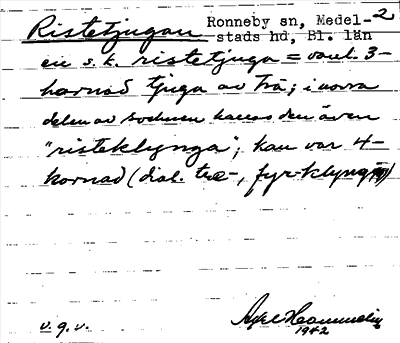 Ristetjugan Ronneby sn, Medel-2
stads hd, Bl. län
en s.k. ristetjuga = vanl. 3-
hornad tjuga av trä; i norra
delen av socknen kallas den även
"risteklynga"; kan var 4-
hornad (dial. tre-, fyr-klynga)
v. g. v.
Axel
1942